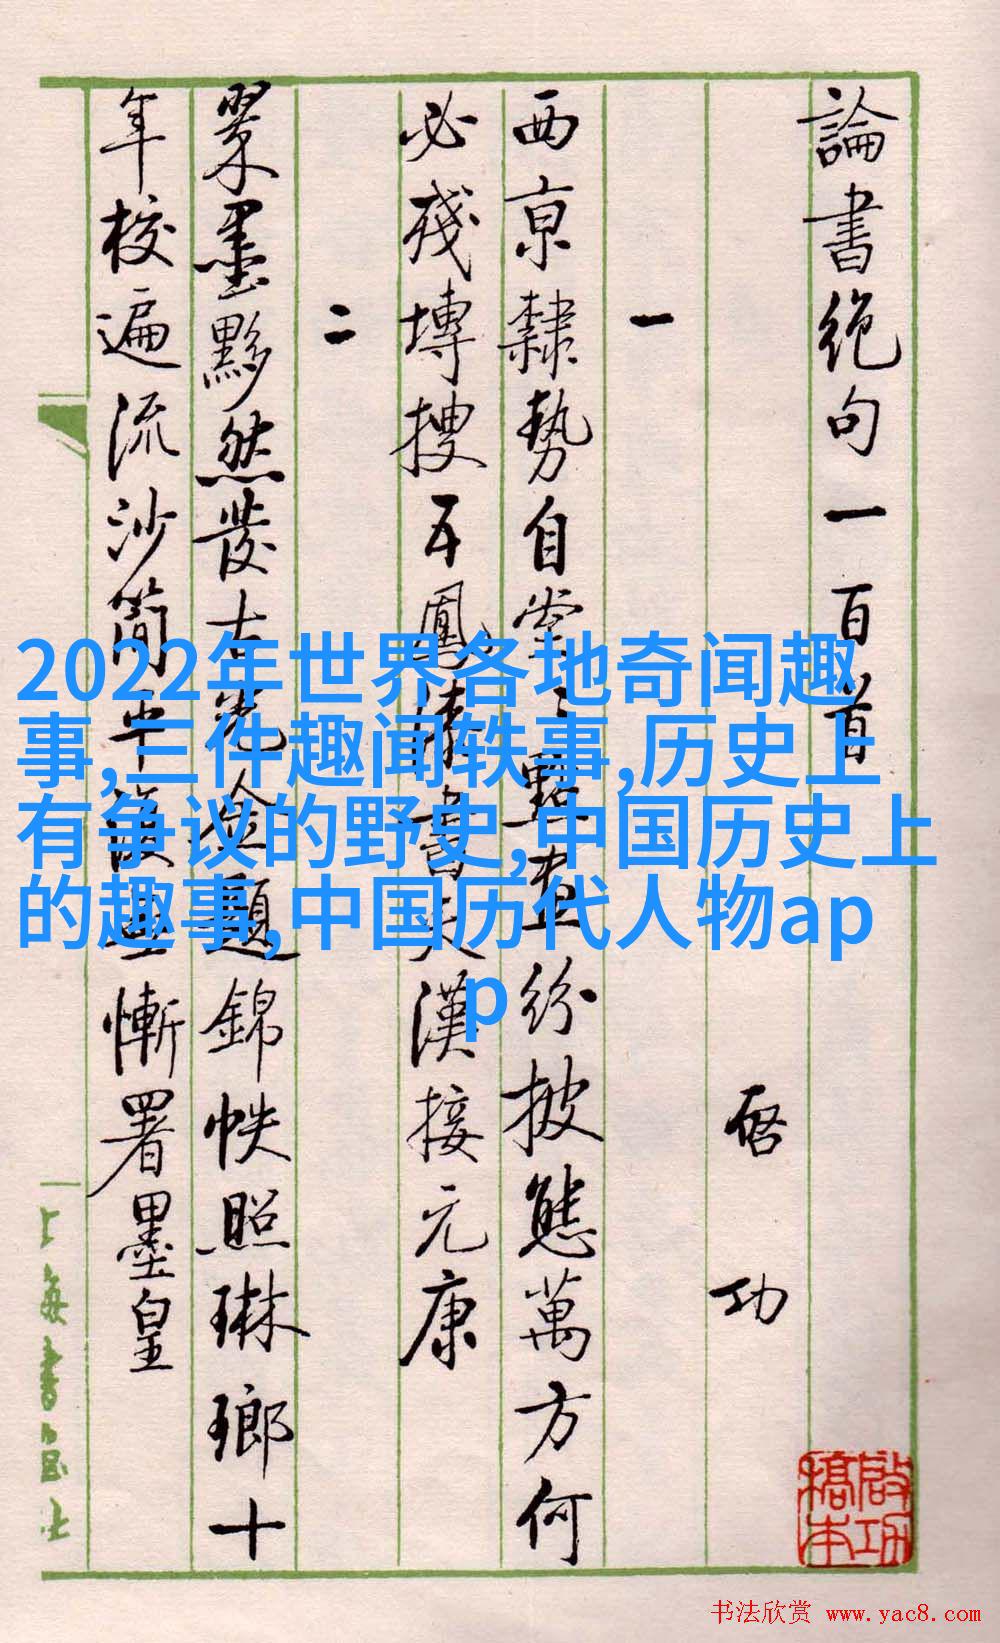 論書絶句一百首
启功
一
西京隸勢自堂堂點畫紛披態萬方何
必殘塼搜五鳳漆書天漢接元康
二
翠墨黟然發古光金題錦帙照琳瑯十
年校遍流沙簡平復無慚署墨皇
2022年世界各地奇闻趣
事,三件趣闻轶事,历史上
有争议的野史,中国历史上
的趣事,中国历代人物ap
p
啟功
稿本
书法欣赏 www.yac8.com